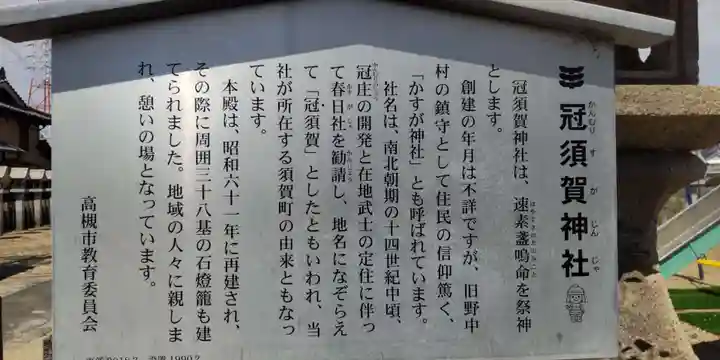 冠須賀神社
かんむり す が じん じゃ
冠須賀神社は、速素盞嗚命を祭神
とします。
創建の年月は不詳ですが、旧野中
村の鎮守として住民の信仰篤く、
「かすが神社」とも呼ばれています。
社名は、南北朝期の十四世紀中頃、
冠庄の開発と在地武士の定住に伴っ
て春日社を勧請し、地名になぞらえ
て「冠須賀」としたともいわれ、当
社が所在する須賀町の由来ともなっ
ています。
本殿は、昭和六十一年に再建され、
その際に周囲三十八基の石燈籠も建
てられました。地域の人々に親しま
れ、憩いの場となっています。
高槻市教育委員会